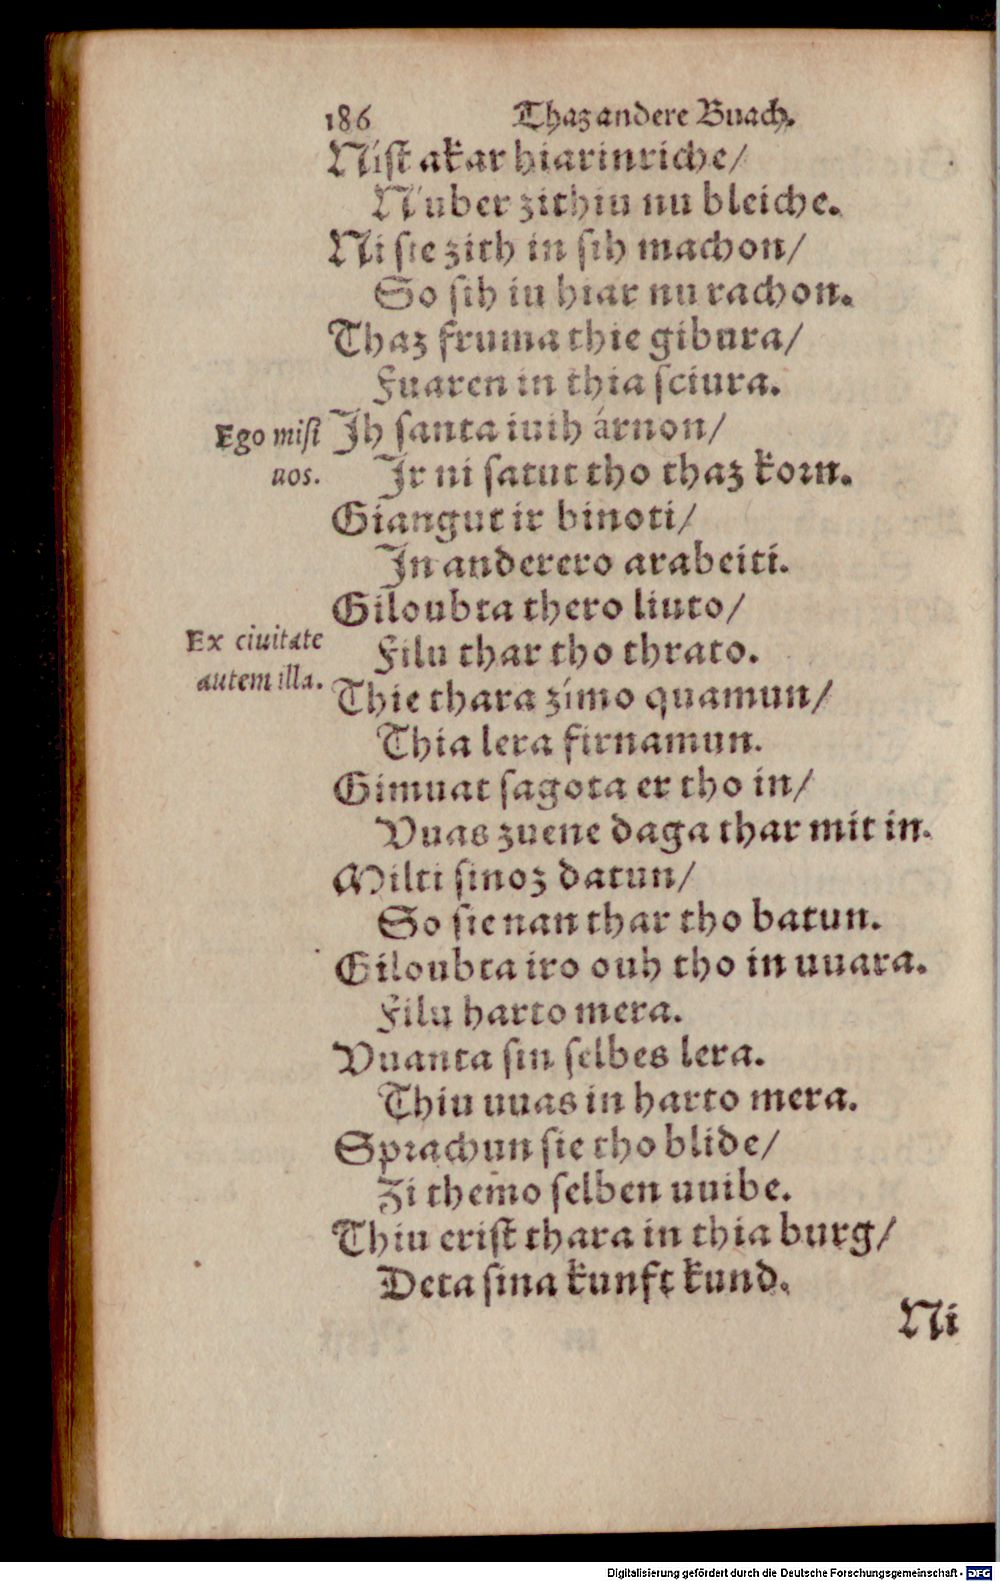 186 Thaz andere Buach.
Níſt akar hiarinriche/
Nuber zithiu nu bleiche.
Ni ſie zith in ſih machon/
So ſih iu hiar nu rachon.
Thaz fruma thie gibura/
Fuaren in thia ſciura.
Ego miſi
uos.
Jh ſanta iuih árnon/
Jr ni ſatut tho thaz korn.
Giangut ir binoti/
Jn anderero arabeití.
Giloubta thero liuto/
Ex ciuitate
autem illa.
Filu thar tho thrato.
Thie thara zímo quamun/
Thia lera firnamun.
Gimuat ſagota er tho in/
Vuas zuene daga thar mit in.
Milti ſinoz datun/
So ſie nan thar tho batun.
Giloubta iro ouh tho in uuara.
Filu harto mera.
Vuanta ſin ſelbes lera.
Thiu uuas in harto mera.
Sprachun ſie tho blide/
Zi themo ſelben uuibe.
Thiu eriſt thara in thia burg/
Deta ſina kunft kund.
Ni
Digitalisierung gefördert durch die Deutsche Forschungsgemeinschaft - DFG